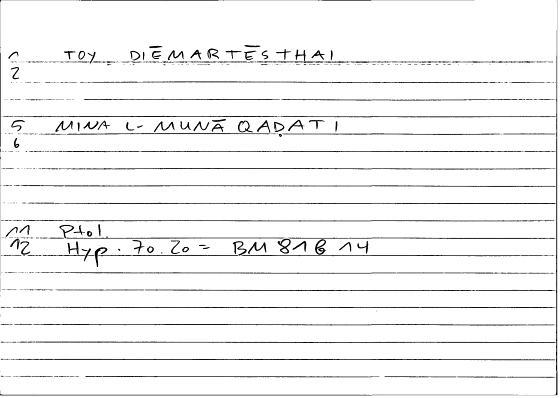 1 TOY DIĒMARTĒSTHAI
2
5 MINA L-MUNĀQAḌATI
6
11 Ptol.
12 Hyp. 70.20 = BM 81 6 14